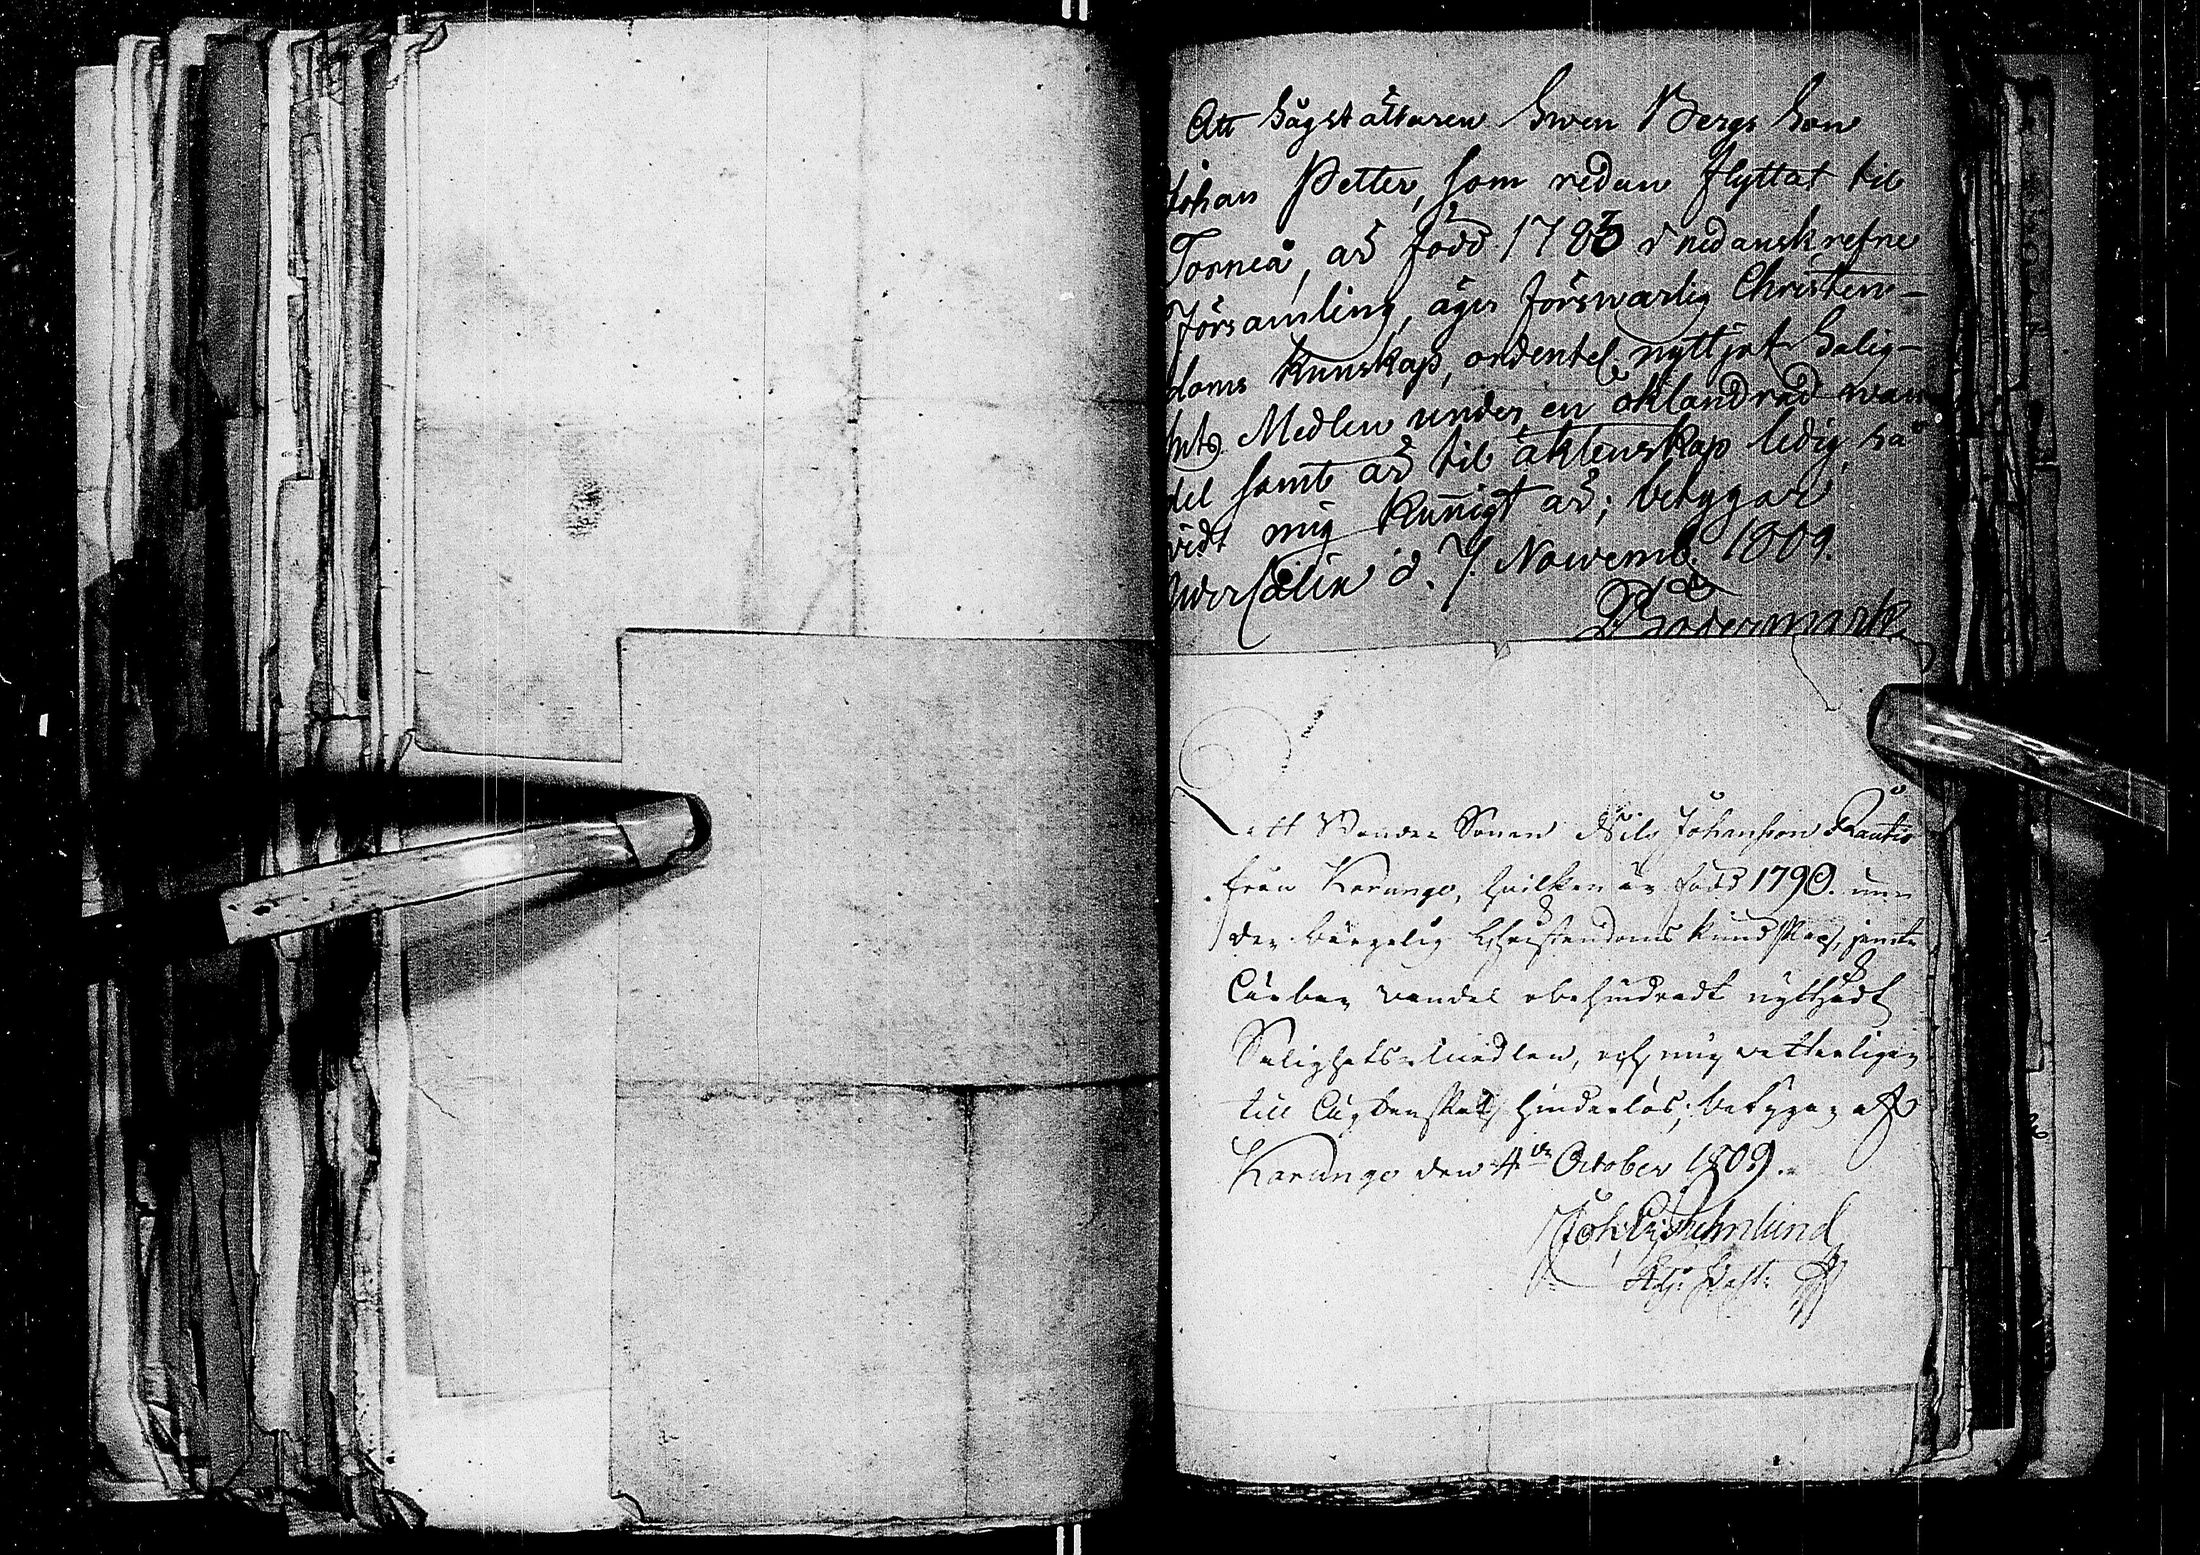 Att Sågställaren Swen Bergs Son
Johan Petter, som redan flyttat til
Torneå, är född 1783 i nedanskrefne
Församling, äger förswarlig Christen-
doms Kunskap, ordentel. nyttjat Salig-
hets Medlen under en oklandrad wan-
del samt är til äktenskap ledig, så
vidt mig kunnigt är; betygar
d. 7. Novemb. 1809.
Att Bonde Sonen Nils Johansson Rautio
från Karungi, hvilken är född 1790. un-
der börgelig Christendoms kundskap, jemte
Ärbar vandel obehindradt nyttjadt
Salighets medlen, och mig vetterligen
till Ägtenskap hinderlös; betygar af
Karungi den 4de October 1809.
Joh.
Adj: Past: